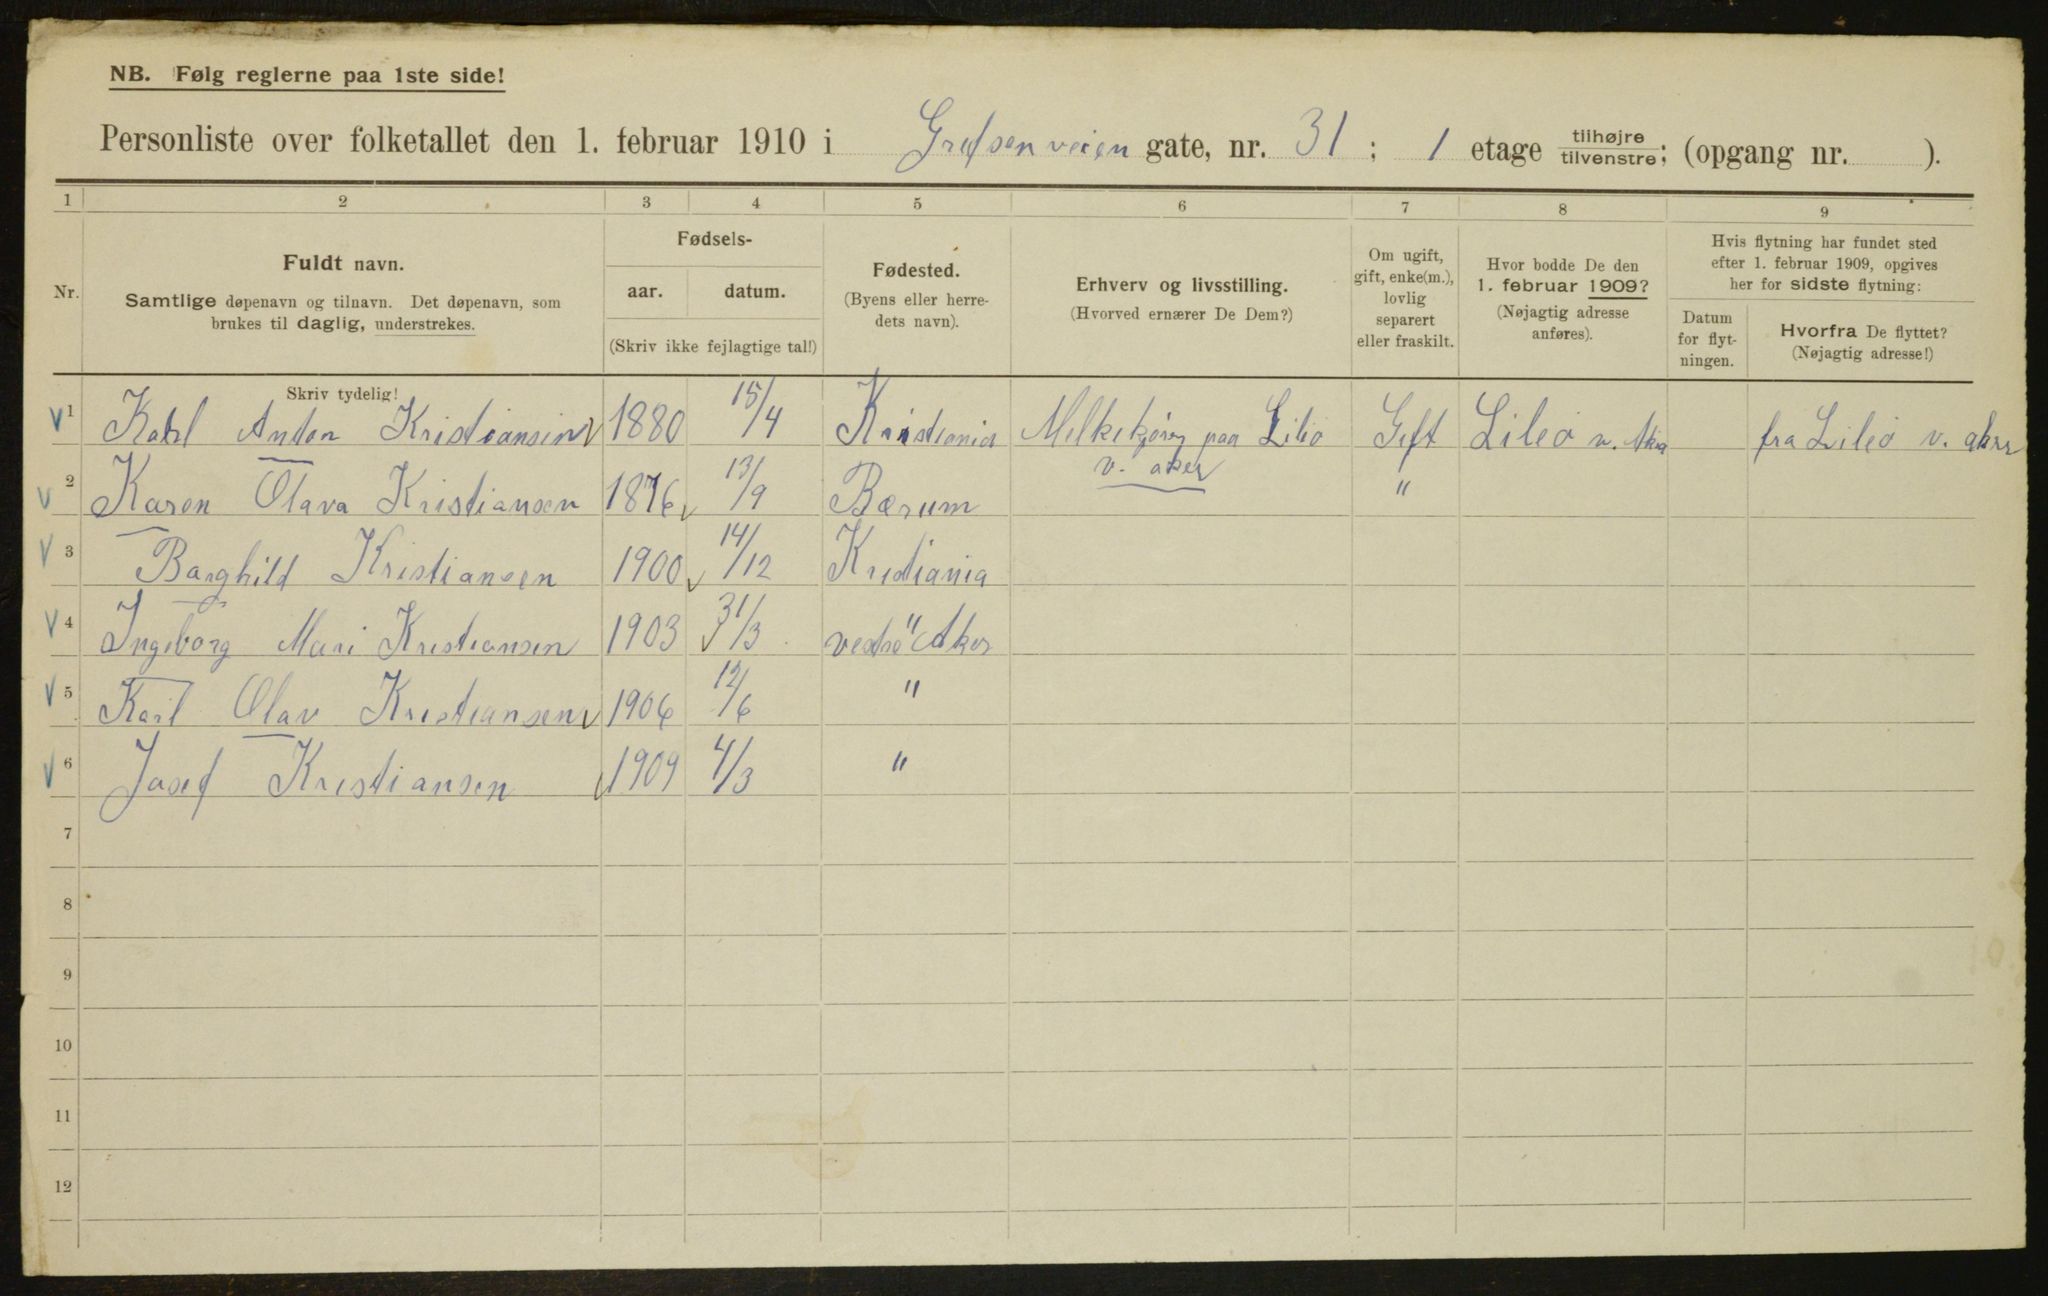 NB. Følg reglerne paa 1ste side!
Personliste over folketallet den 1. februar 1910 i Grefsenveien gate, nr. 31 ; 1 etage tilhøjre tilvenstre; (opgang nr. ).
1 2 3 4 5 6 7 8 9
Nr.
Fuldt navn.
Samtlige døpenavn og tilnavn. Det døpenavn, som
brukes til daglig, understrekes.
Fødsels-
aar. datum.
(Skriv ikke fejlagtige tal!)
Fødested.
(Byens eller herre-
dets navn).
Erhverv og livsstilling.
(Hvorved ernærer De Dem?)
Om ugift,
gift, enke(m.),
lovlig
separert
eller fraskilt.
Hvor bodde De den
1. februar 1909?
(Nøjagtig adresse
anføres).
Hvis flytning har fundet sted
efter 1. februar 1909, opgives
her for sidste flytning:
Datum
for flyt-
ningen.
Hvorfra De flyttet?
(Nøjagtig adresse!)
Skriv tydelig!
1 Karl Anton Kristiansen 1880 15/4 Kristiania Melkekjörer paa Lilio Gift Lileo v. Aker fra Lileo v. aker
v. aker
2 Karen Olava Kristiansen 1876 13/9 Bærum "
3 Borghild Kristiansen 1900 14/12 Kristiania
4 Ingeborg Mari Kristiansen 1903 31/3 vestre Aker
5 Karl Olav Kristiansen 1906 12/6 "
6 Josef Kristiansen 1909 4/3 "
7
8
9
10
11
12